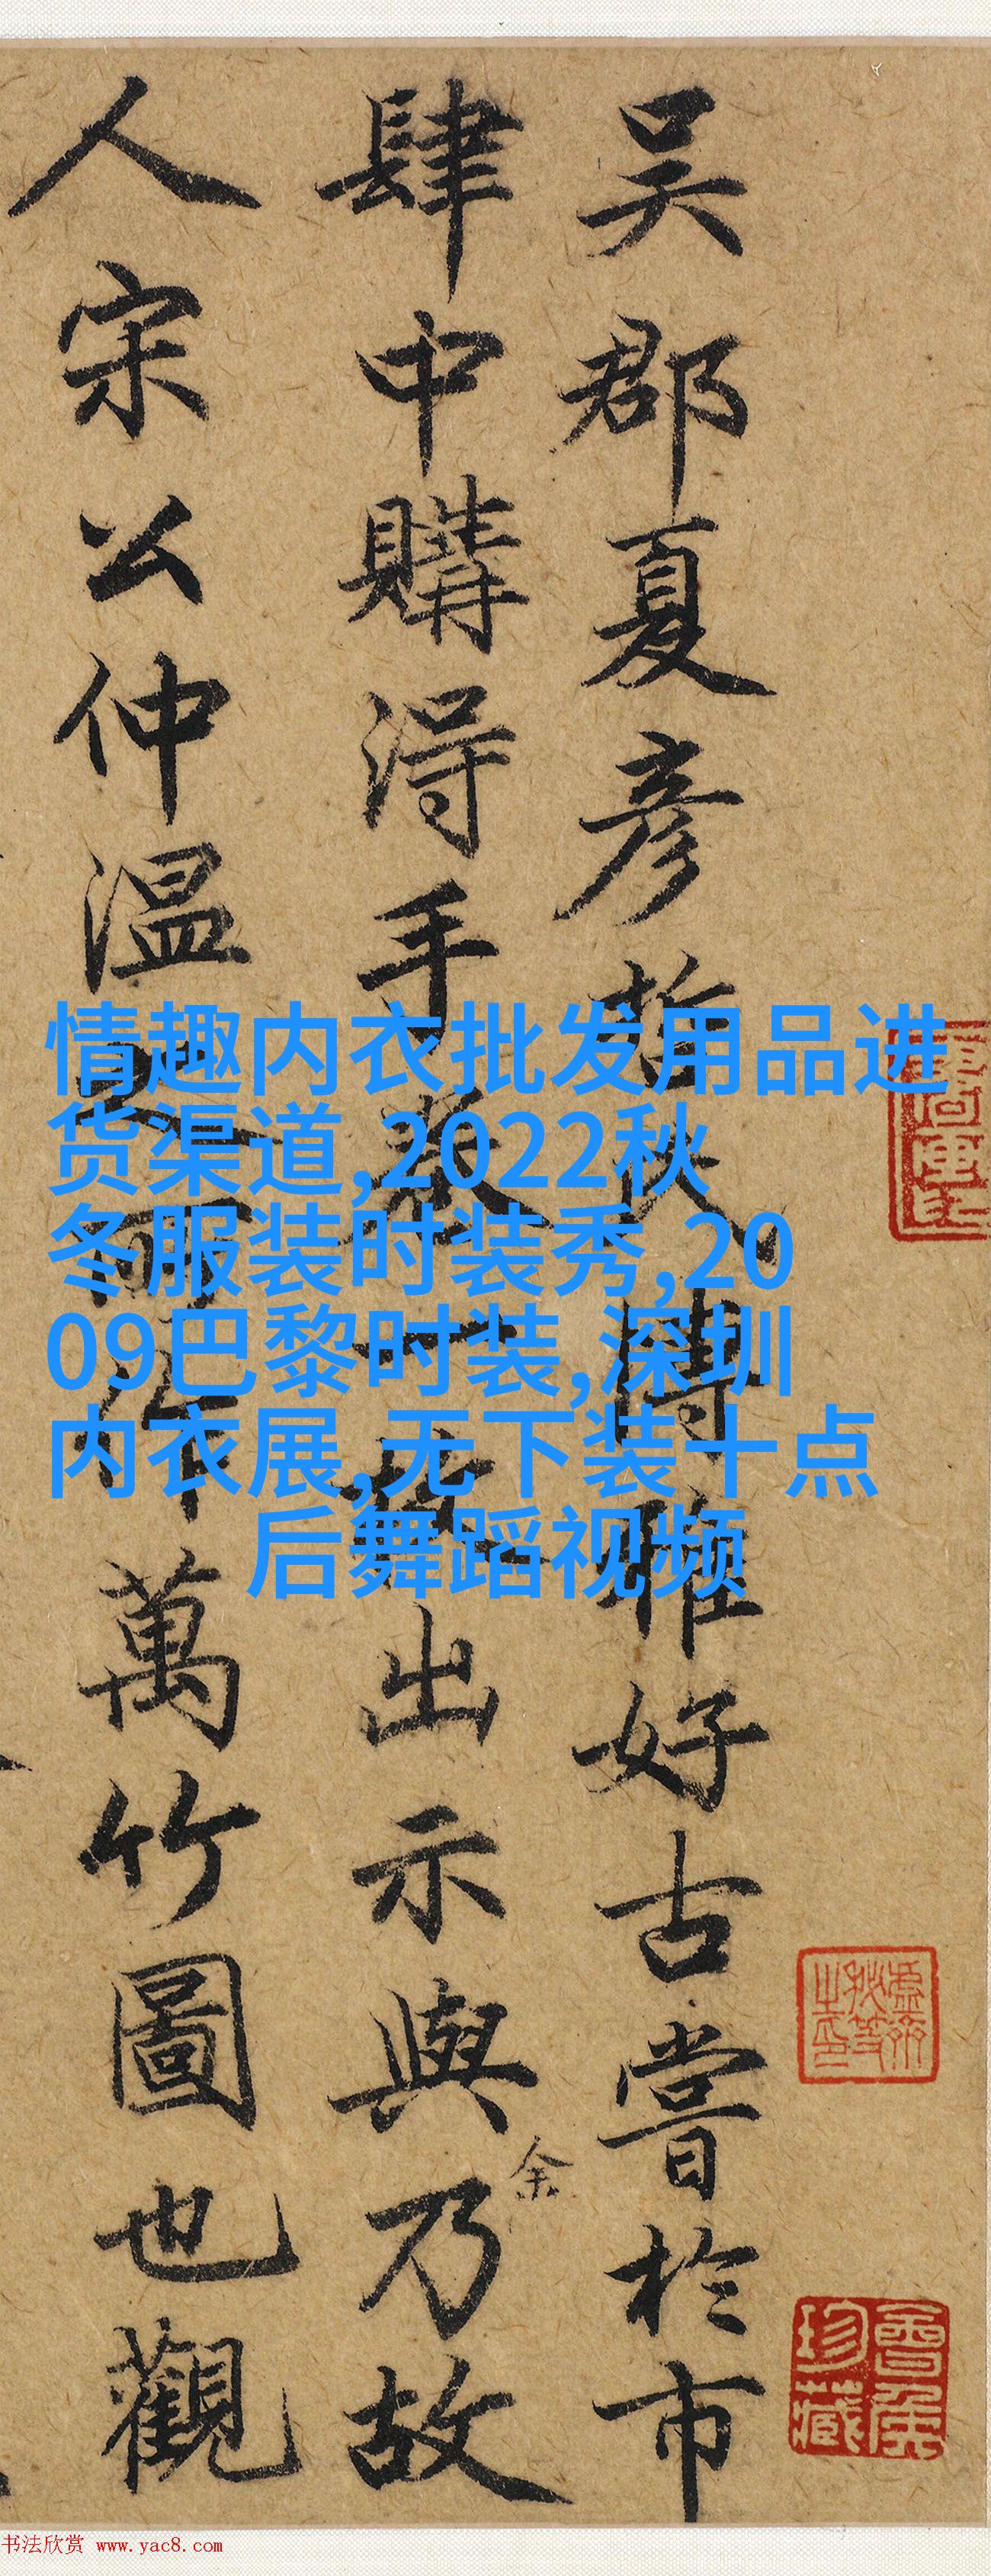 吴郡夏彦哲夫博雅好古嘗於市
肆中購得手卷一出示與余乃故
人宋公仲温所作萬竹圖也觀
情趣内衣批发用品进
货渠道,2022秋
冬服装时装秀,20
09巴黎时装,深圳
内衣展,无下装十点
后舞蹈视频
珍藏
书法欣赏 www.yac8.com